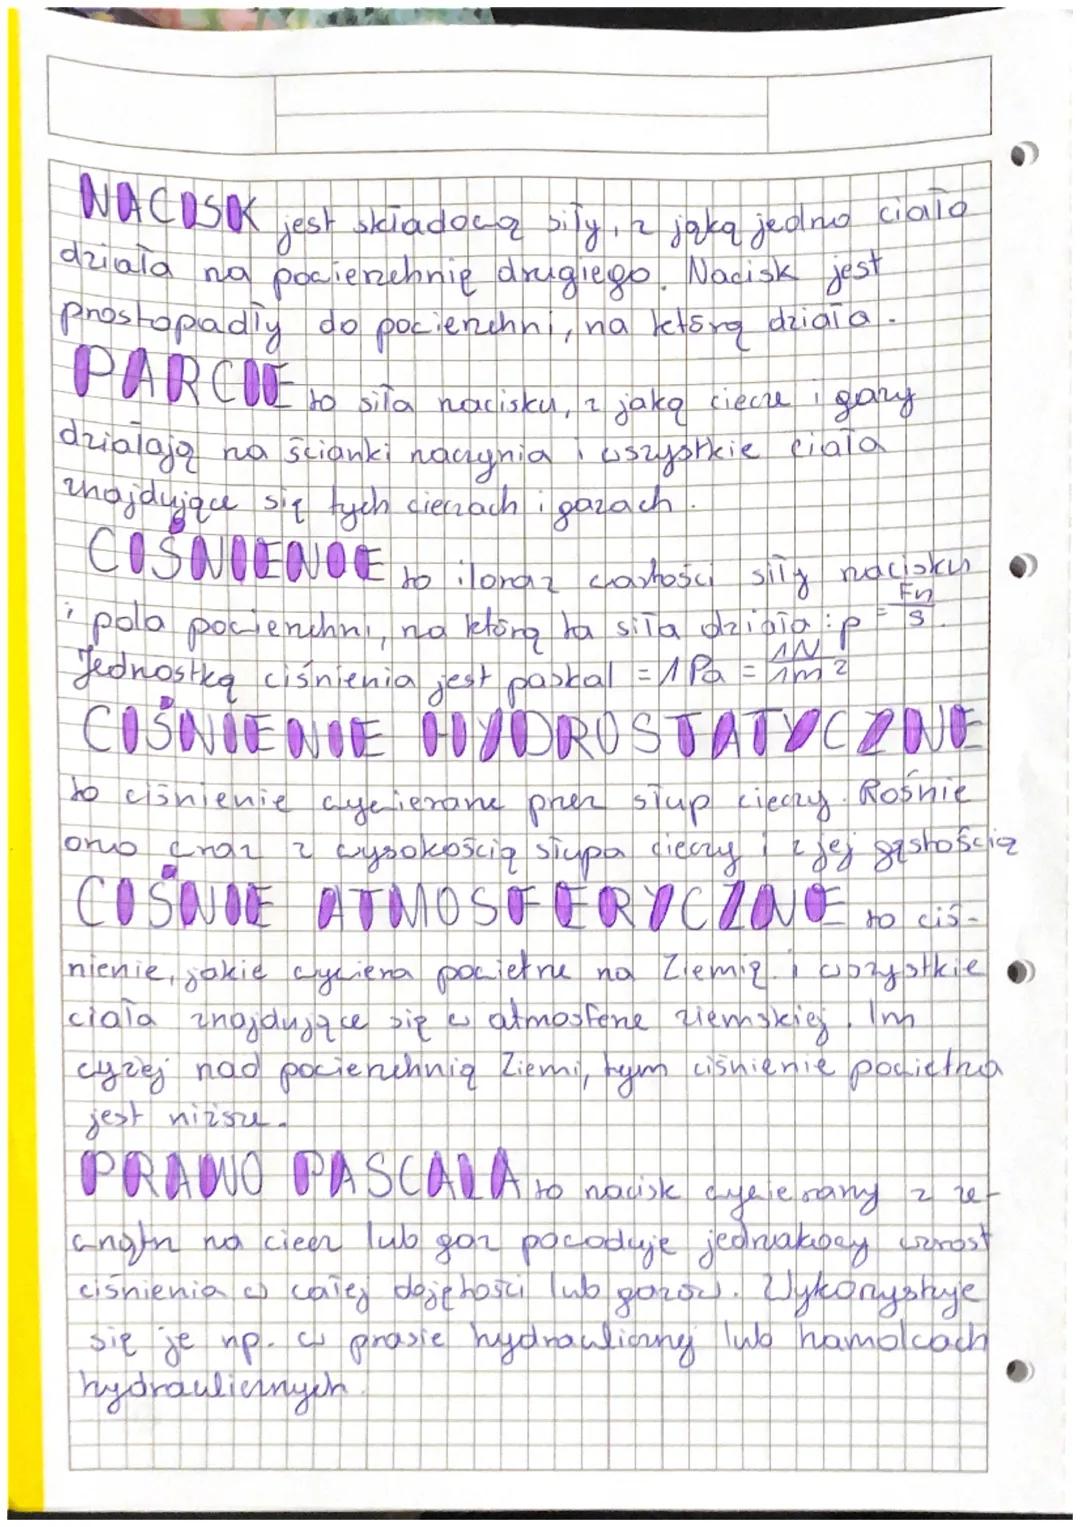 NACISK jest składową siły, z jaką jedno ciało
działa na powierzchnię drugiego. Nacisk jest
prostopadły do powierzchni, na którą działa.
PARCIE to siła nacisku, z jaką ciecze i gazy
działają na ścianki naczynia i wszystkie ciała
znajdujące się tych cieczach i gazach.
CIŚNIENIE to iloraz wartości siły nacisku
i pola powierzchni, na którą ta siła działa: p = Fn/S.
Jednostką ciśnienia jest paskal = 1 Pa = 1N/1m²
CIŚNIENIE HYDROSTATYCZNE
to ciśnienie wywierane przez słup cieczy. Rośnie
ono wraz z wysokością słupa cieczy i z jej gęstością
CIŚNIE ATMOSFERYCZNE to ciś-
nienie, jakie wywiera powietrze na Ziemię i wszystkie
ciała znajdujące się w atmosferze ziemskiej. Im
wyżej nad powierzchnią Ziemi, tym ciśnienie powietrza
jest niższe.
PRAWO PASCALA to nacisk wywierany z ze-
wnątrz na ciecz lub gaz powoduje jednakowy wzrost
ciśnienia w całej objętości lub gazów. Wykorzystuje
się je np. w prasie hydraulicznej lub hamulcach
hydraulicznych.